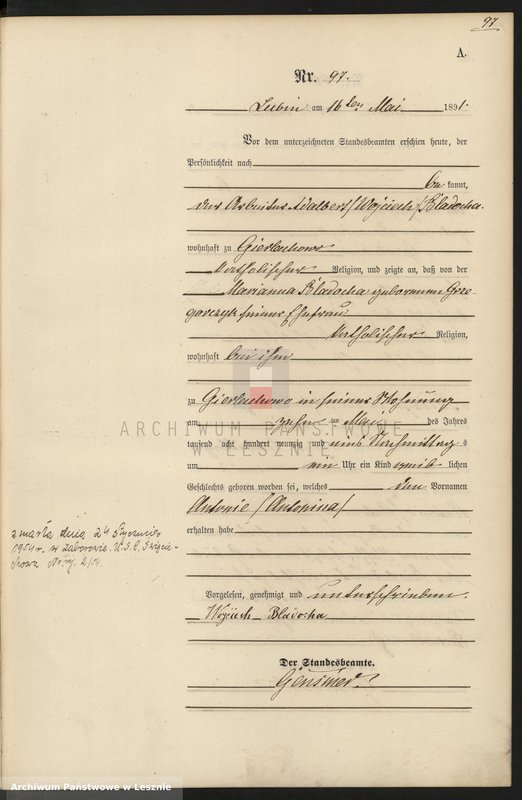 97
A.
Nr. 97.
Lubin am 16ten Mai 1891.
Vor dem unterzeichneten Standesbeamten erschien heute, der
Persönlichkeit nach
be kannt,
der Arbeiter Adalbert /Wojciech/ Bladocha
wohnhaft zu Gierlachowo
katholischer Religion, und zeigte an, daß von der
Marianna Bladocha geborenen Grze-
gorczyk seiner Ehefrau
katholischer Religion,
wohnhaft bei ihm
zu Gierlachowo in seiner Wohnung
am zehn ten Mai des Jahres
tausend acht hundert neunzig und eins Nachmittag s
um ein Uhr ein Kind weib lichen
Geschlechts geboren worden sei, welches den Vornamen
Antonie /Antonina/
erhalten habe
zmarła dnia 24 stycznia
1954 r. w Zaborowie. U.S.C. Święcie-
chowa Nr. 2/54.
Vorgelesen, genehmigt und unterschrieben.
Wojciech Bladocha
Der Standesbeamte.
ARCHIWUM PAŃSTWOWE
W LESZNIE
Archiwum Państwowe w Lesznie